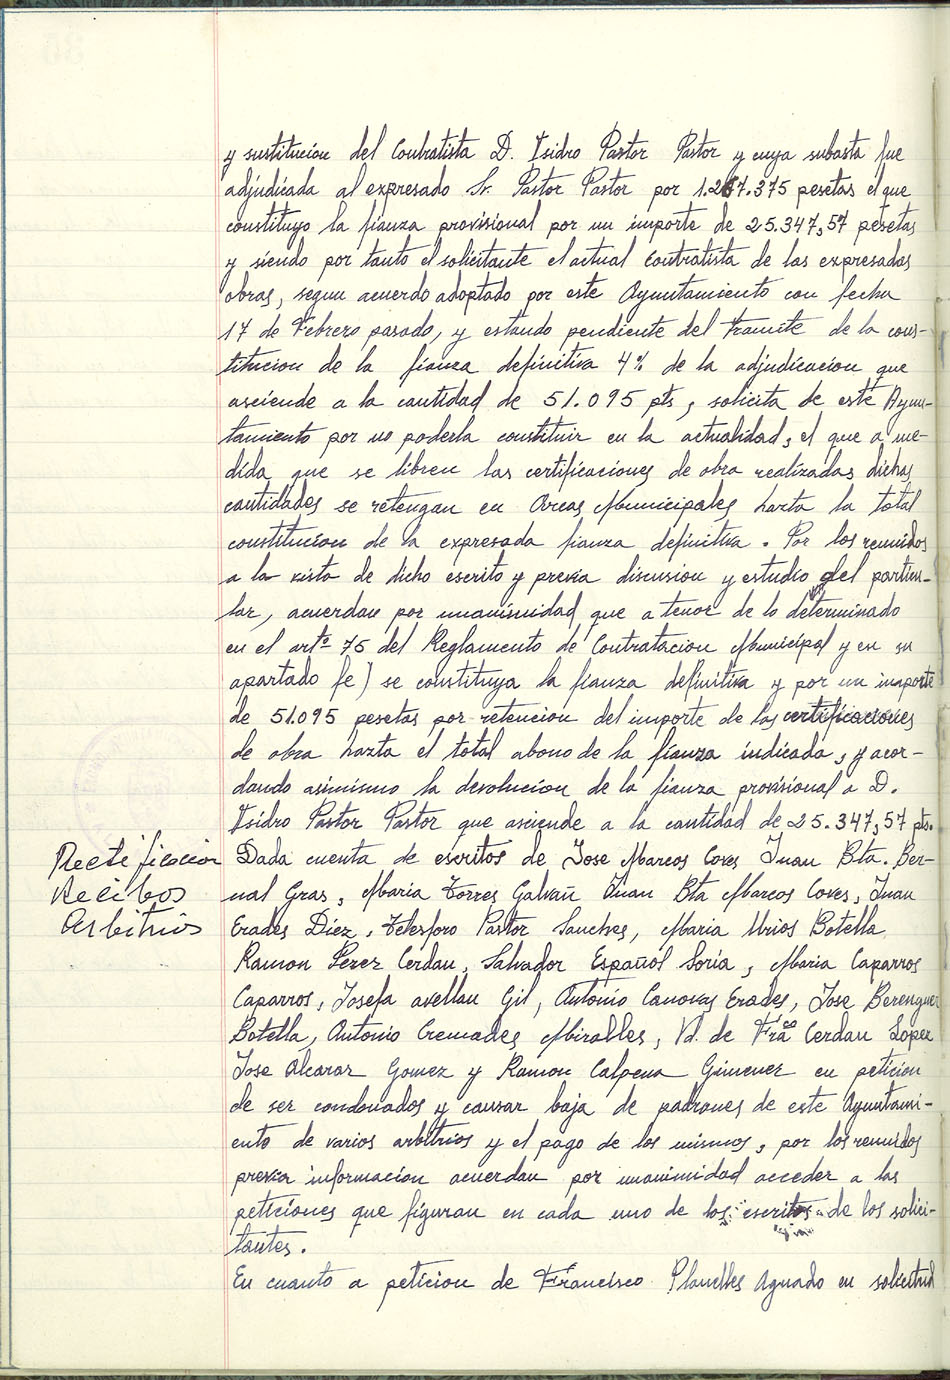 y sustitucion del Contratista D. Isidro Pastor Pastor y cuya subasta fue
adjudicada al expresado Sr. Pastor Pastor por 1.267.375 pesetas el que
constituyo la fianza provisional por un importe de 25.347,57 pesetas
y siendo por tanto el solicitante el actual contratista de las expresadas
obras, segun acuerdo adoptado por este Ayuntamiento con fecha
17 de Febrero pasado, y estando pendiente del tramite de la cons-
titucion de la fianza definitiva 4% de la adjudicacion que
asciende a la cantidad de 51.095 pts, solicita de este Ayun-
tamiento por no poderla constituir en la actualidad, el que a me-
dida que se libren las certificaciones de obra realizadas dichas
cantidades se retengan en Arcas Municipales hazta la total
constitucion de la expresada fianza definitiva. Por los reunidos
a la vista de dicho escrito y previa discusion y estudio del particu-
lar, acuerdan por unanimidad que a tenor de lo determinado
en el artº 75 del Reglamento de Contratacion Municipal y en su
apartado fe) se constituya la fianza definitiva y por un importe
de 51.095 pesetas por retencion del importe de las certificaciones
de obra hazta el total abono de la fianza indicada, y acor-
dando asimismo la devolucion de la fianza provisional a D.
Isidro Pastor Pastor que asciende a la cantidad de 25.347,57 pts.
Rectificacion
Recibos
Arbitrios
Dada cuenta de escritos de Jose Marcos Coves Juan Bta. Ber-
nal Gras, Maria Torres Galvañ Juan Bta Marcos Coves, Juan
Erades Diez, Telesforo Pastor Sanches, Maria Mrios Botella
Ramon Perez Cerdan, Salvador Español Soria, Maria Caparros
Caparros, Josefa avellan Gil, Antonio Canovas Erades, Jose Berenguer
Botella, Antonio Cremades Miralles, Vd. de Frªco Cerdan Lopez
Jose Alcaraz Gomez y Ramon Calpena Gimenez en peticion
de ser condonados y causar baja de padrones de este Ayuntami-
ento de varios arbitrios y el pago de los mismos, por los reunidos
previa informacion acuerdan por unanimidad acceder a las
peticiones que figuran en cada uno de los escritos de los solici-
tantes.
En cuanto a peticion de Francisco Planelles Aguado en solicitud